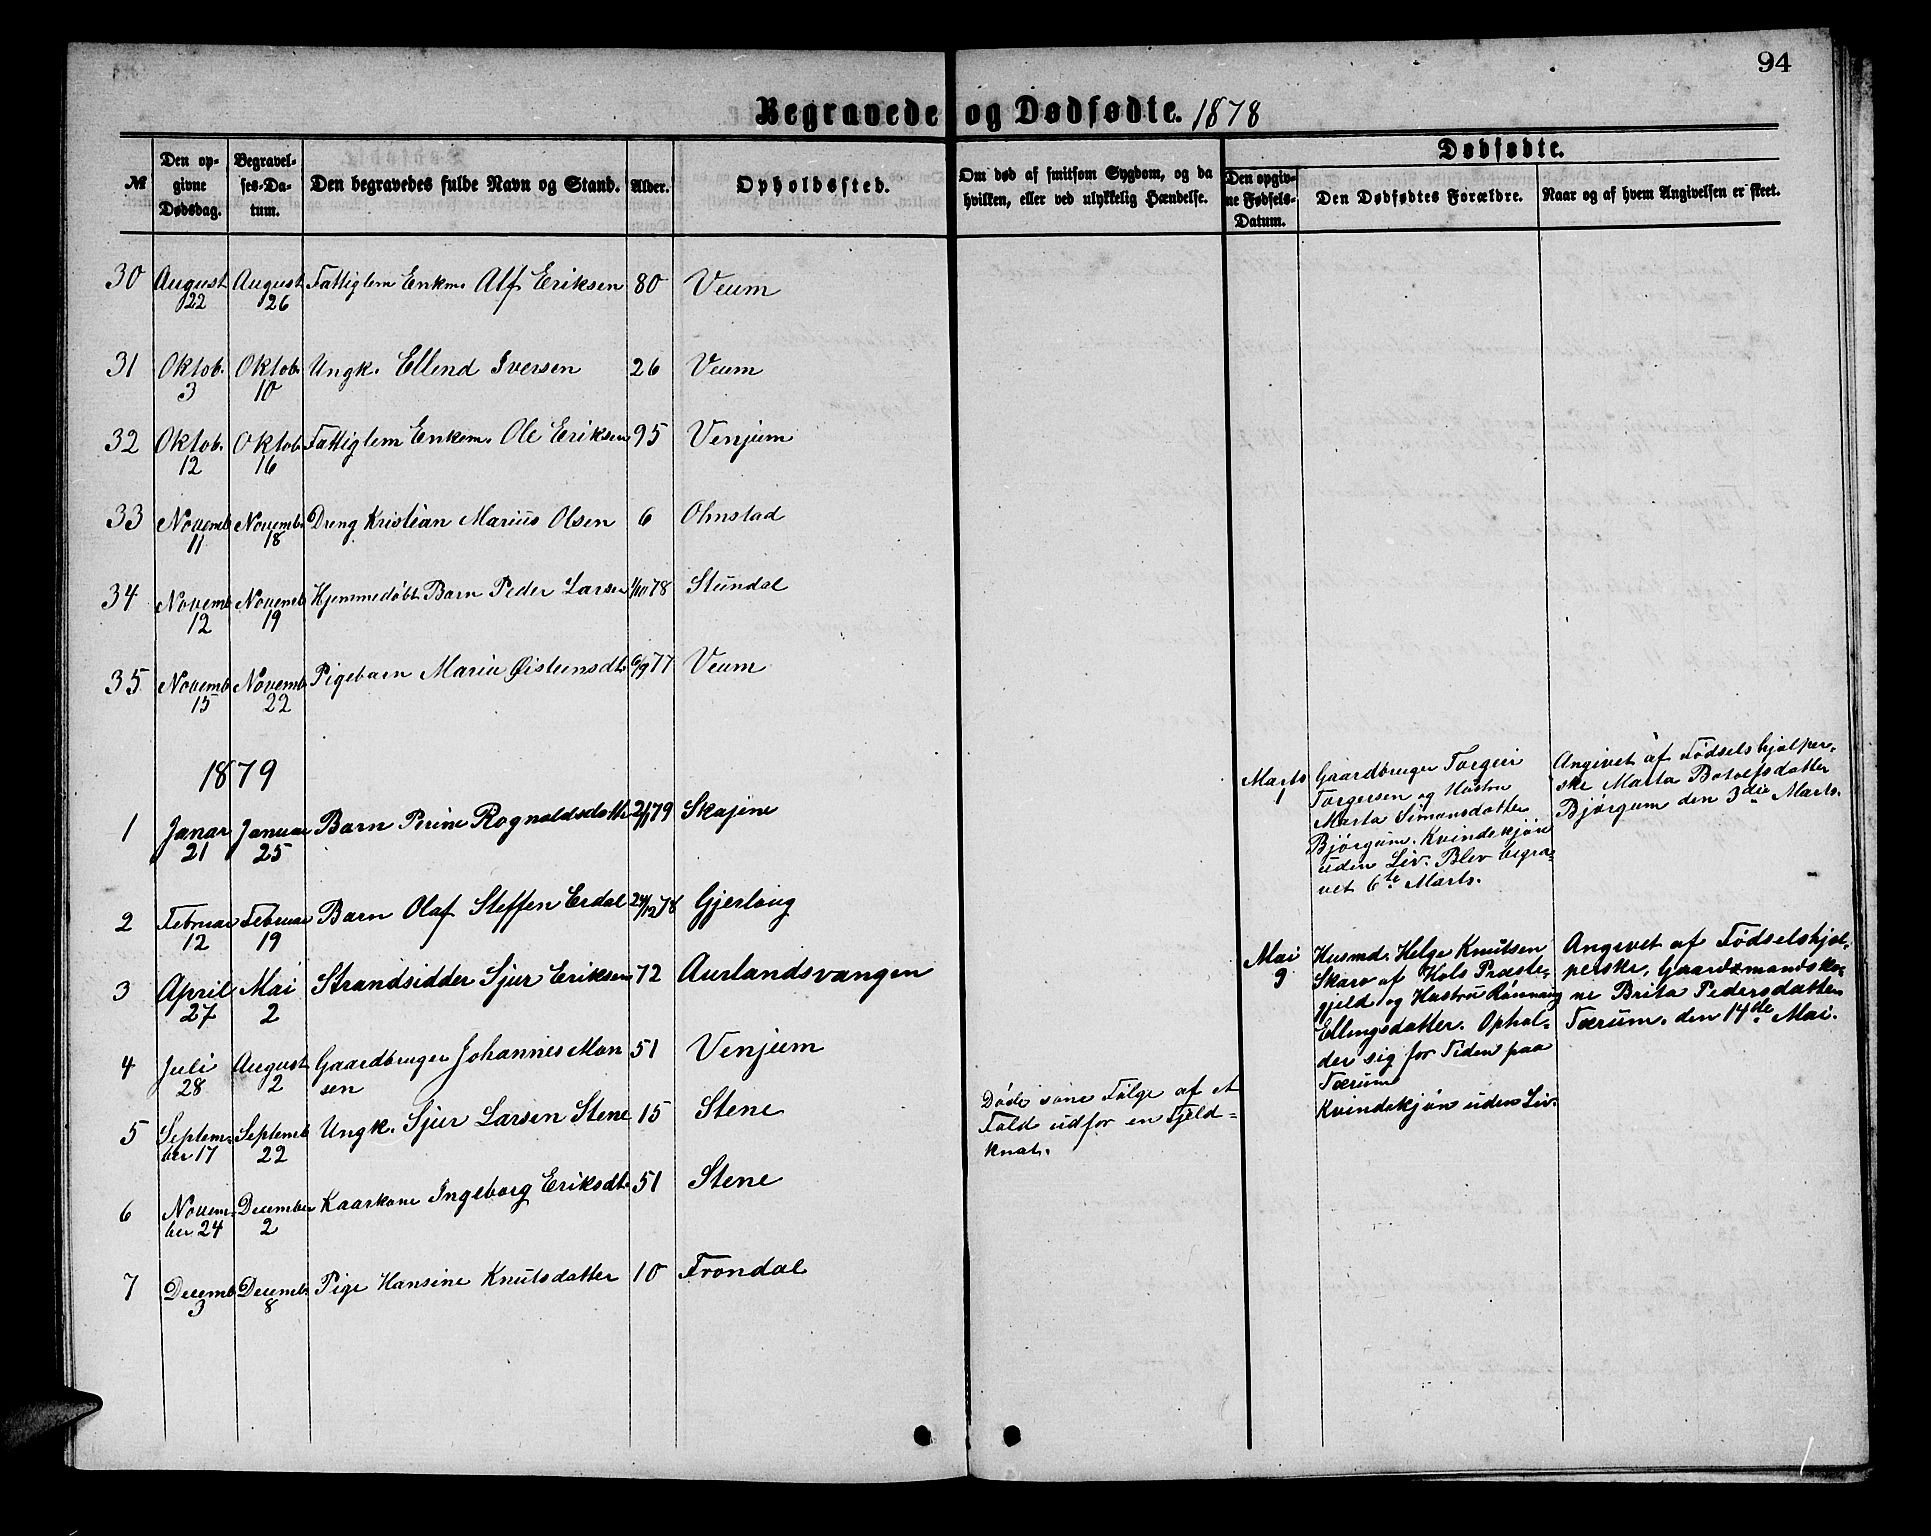 94
Begravede og Dødfødte. 1878
№
Den opgivne Dødsdag.
Begravelses-Datum.
Den begravedes fulde Navn og Stand.
Alder.
Opholdssted.
Om død af smitsom Sygdom, og da hvilken, eller ved ulykkelig Hændelse.
Dødfødte.
Den opgivne Fødsels-Datum.
Den Dødfødtes Forældre.
Naar og af hvem Angivelsen er skeet.
30 August 22 August 26 Fattiglem Enkm. Alf Eriksen 80 Veum
31 Oktob. 3 Oktob. 10 Ungk. Ellend Iversen 26 Veum
32 Oktob. 12 Oktob. 16 Fattiglem Enkem. Ole Eriksen 95 Venjum
33 Novemb. 11 Novemb. 18 Dreng Kristian Marius Olsen 6 Ohnstad
34 Novemb. 12 Novemb. 19 Hjemmedøbt Barn Peder Larsen 1/10 78 Stundal
35 Novemb. 15 Novemb. 22 Pigebarn Maria Øisteensdt. 6/9 77 Veum
1879
1 Janar 21 Januar 25 Barn Perine Rognaldsdatter 2/1 79 Skajene
2 Februar 12 Februar 19 Barn Olaf Steffen Erdal 24/12 78 Gjerløug
3 April 27 Mai 2 Strandsidder Sjur Eriksen 72 Aurlandsvangen
4 Juli 28 August 2 Gaardbruger Johannes Monsen 51 Venjum
5 September 17 Septemb. 22 Ungk. Sjur Larsen Stene 15 Stene
Døde som Følge af et
Fald udfor en Fjeld-
knat.
6 November 24 December 2 Kaarkone Ingeborg Eriksdt. 51 Stene
7 Decemb. 3 Decemb. 8 Pige Hansine Knutsdatter 10 Frondal
Marts 1
Gaardbruger Torgeir
Torgersen og Hustru
Marta Simonsdatter
Bjørgum. Kvindekjøn
uden Liv. Blev begra-
vet 6te Marts.
Angivet af Fødselshjelper-
ske Marta Botolfsdatter
Bjørgum den 3die Marts.
Mai 9
Husmd. Helge Knutsen
Skaro af Hols Præste-
gjeld og Hustru Rønnaug
Ellingsdatter. Ophol-
der sig for Tiden paa
Tærum
Kvindekjøn uden Liv.
Angivet af Fødselshjel-
perske, Gaardmandsko-
ne Brita Pedersdatter
Tærum. den 14de Mai.